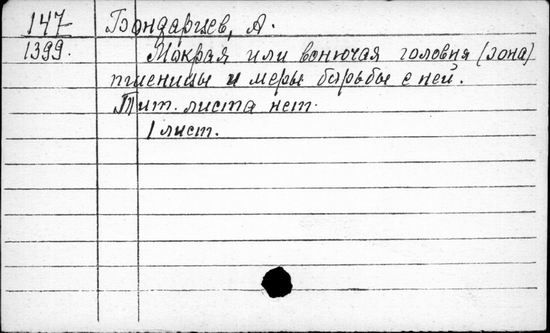 147 Бондарцев, А.
1399. Мокрая или вонючая головня (зона)
пшеницы и меры борьбы с ней.
Тит. листа нет.
1 лист.